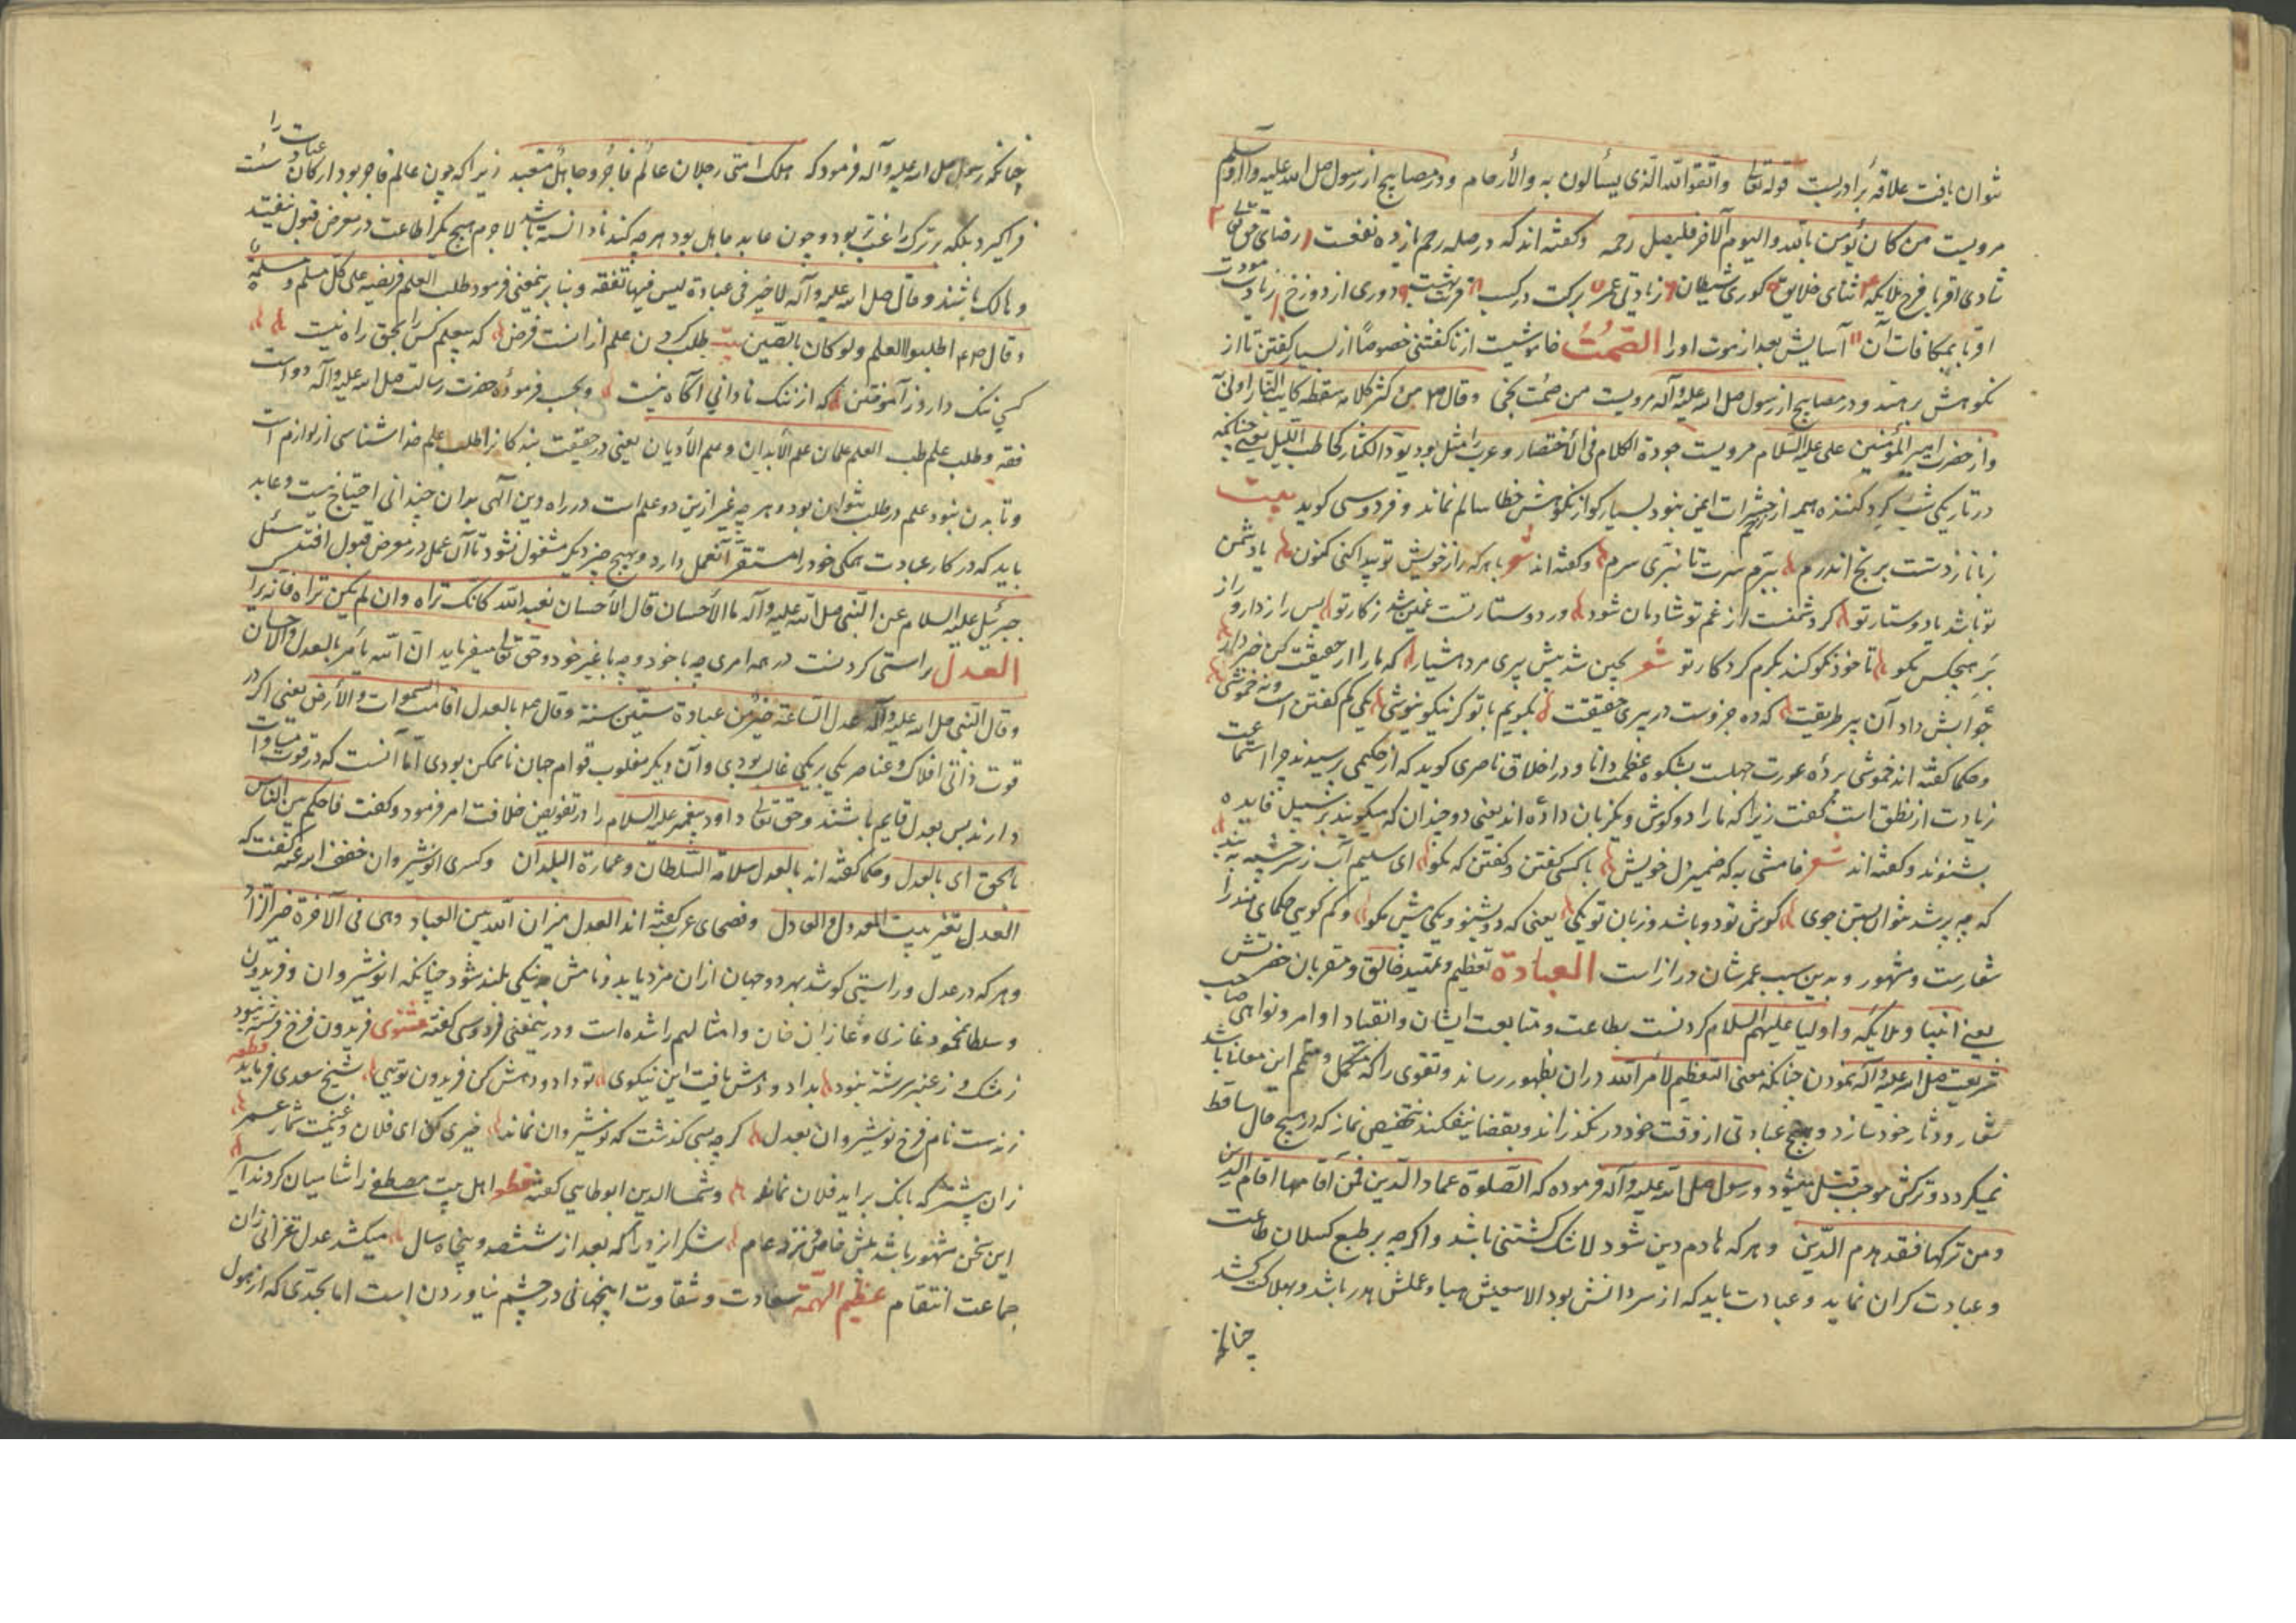 توان یافت علاقهٔ برادریست قوله تعالی واتقوا الله الذی یسألون به والأرحام و در مصابیح از رسول صلی الله علیه وآله وسلم
مرویست من کان یؤمن بالله والیوم الآخر فلیصل رحمه و گفته‌اند که در صله رحم ازین ده نفعست رضای حق تعالی
شادی اقربا فرح ملایکه ثنای خلایق کوری شیطان زیادتی عمر برکت در کسب قربت بهشت دوری از دوزخ زیادت مودت
اقربا بمکافات آن آسایش بعد از موت او را الصمت خاموشیست از ناگفتنی خصوصاً از بسیار گفتن تا از
نکوهش برهند و در مصابیح از رسول صلی الله علیه وآله مرویست من صمت نجی وقال من کثر کلامه سقطه
واز حضرت امیر المؤمنین علی علیه السلام مرویست جودة الکلام فی الأختصار و عرب را مثل بود المکثار کحاطب اللیل یعنی چنانکه
در تاریکی شب گرد کننده هیمه از حشرات ایمن نبود بسیارگو از نکوهش خطا سالم نماند و فردوسی گوید بیت
زبانا ز دستت برنج اندرم ببرم سرت تا نبری سرم و گفته‌اند شعر با هر که راز خویش تو پیدا کنی کنون یا دشمن
تو باشد یا دوستار تو گر دشمنست از غم تو شادمان شود ور دوستار تست غمین شد ز کار تو پس راز دار و راز
بر هیچکس مگو تا خود نکو کند بکرم کردکار تو شعر بچین شد پیش پیری مرد هشیار که ما را از حقیقت کن خبردار
جوابش داد آن پیر طریقت که ده جزوست در پیری حقیقت بگویم با تو گر نیکو نیوشی یکی کم گفتن است و نه خموشی
وحکما گفته‌اند خموشی پردهٔ عورت جهلست بشکوه عظمت دانا و در اخلاق ناصری گوید که از حکیمی پرسیدند چرا استماعت
زیادت از نطق است گفت زیرا که ما را دو گوش و یک زبان داده‌اند یعنی دو چندان که میگویند
بشنوند و گفته‌اند شعر خامشی به که ضمیر دل خویش با کسی گفتن و گفتن که مگو ای سلیم آب ز سرچشمه ببند
که چو پر شد نتوان بستن جوی گوش تو دو باشد و زبان تو یکی یعنی که دو بشنو و یکی بیش مگو و کم گویی حکمای هند را
شعارست و مشهور و بدین سبب عمرشان درازاست العبادة تعظیم و تمجید خالق و مقربان حضرتش
یعنی انبیا و ملایکه و اولیا علیهم السلام کردنست بطاعت و متابعت ایشان وانقیاد اوامر و نواهی صاحب
شریعت صلی الله علیه وآله نمودن چنانکه معنی التعظیم لأمر الله دران بظهور رساند و تقوی را که مکمل و متمم این معنا باشد
شعار و دثار خود سازد و هیچ عبادتی از وقت خود در نگذراند و بقضا نیفکند بتخصیص نماز که در هیچ حال ساقط
نمیگردد و ترکش موجب قتل میشود و رسول صلی الله علیه وآله فرموده که الصلوة عماد الدین فمن اقامها اقام الدین
ومن ترکها فقد هدم الدین و هر که هادم دین شود لاشک کشتنی باشد واگرچه بر طبع کسلان طاعت
وعبادت گران نماید و عبادت باید که از سر دانش بود الا سعیش هبا و عملش هدر باشد و بهلاکت کشد
چنانکه
چنانکه رسول صلی الله علیه وآله فرمود که اهلک امتی رجلان عالم فاجر و جاهل متعبد زیرا که چون عالم فاجر بود ارکان عبادت را سست
فراگیرد بلکه بر ترک راغب‌تر بود و چون عابد جاهل بود هرچه کند نادانسته باشد لاجرم هیچ یکرا طاعت در معرض قبول نیفتد
و هالک باشند وقال صلی الله علیه وآله لاخیر فی عبادة لیس فیها تفقه وبنا برینمعنی فرمود طلب العلم فریضه علی کل مسلم ومسلمة
وقال اطلبوا العلم ولو کان بالصین بیت طلب کردن علم از آنست فرض که بیعلم کس را بحق راه نیست
کسی ننگ دارد ز آموختن که از ننگ نادانی آگاه نیست و بحسب فرمودهٔ حضرت رسالت صلی الله علیه وآله دو است
فقه و طلب علم طب العلم علمان علم الأبدان وعلم الأدیان یعنی در حقیقت بندگانرا طلب علم خدا شناسی از لوازم است
وتا بدن نبود علم در طلب نتوان بود و هرچه غیر ازین دو علم است در راه دین الهی بدان چندانی احتیاج نیست و عابد
باید که در کار عبادت همگی خود را مستقر آنعمل دارد و بهیچ چیز دیگر مشغول نشود تا آن عمل در معرض قبول افتد سئل
جبرئیل علیه السلام عن النبی صلی الله علیه وآله ما الأحسان قال الأحسان تعبد الله کانک تراه وان لم یکن تراه فانه یراک
العدل راستی کردنست در همه امری چه با خود و چه با غیر خود و حق تعالی میفرماید ان الله یأمر بالعدل والأحسان
وقال النبی صلی الله علیه وآله عدل الساعة خیر من عبادة ستین سنة وقال بالعدل اقامت السموات والأرض یعنی اگر در
قوت ذاتی افلاک و عناصر یکی بر یکی غالب بودی و آن دیگر مغلوب قوام جهان ناممکن بودی اما آنست که در قوت مساوات
دارند پس بعدل قایم باشند و حق تعالی داود پیغمبر علیه السلام را در تفویض خلافت امر فرمود و گفت فاحکم بین الناس
بالحق ای بالعدل وحکما گفته‌اند بالعدل سلامة السلطان وعمارة البلدان وکسری انوشیروان خفف الله عنه گفت که
العدل وفصحای عرب گفته‌اند العدل میزان الله بین العباد وهی فی الآخرة خیر الزاد
وهر که در عدل و راستی کوشد بهر دو جهان ازان مزد یابد و نامش بنیکی بلند شود چنانکه انوشیروان و فریدون
و سلطانمحمود غازی و غازان خان و امثالهم را شده است و درینمعنی فردوسی گفته مثنوی فریدون فرخ فرشته نبود
ز مشک و ز عنبر سرشته نبود بداد و دهش یافت این نیکوی تو داد و دهش کن فریدون تویی شیخ سعدی فرماید قطعه
زندست نام فرخ نوشیروان بعدل گرچه بسی گذشت که نوشیروان نماند خیری کن ای فلان و غنیمت شمار عمر
زان پیشتر که بانگ برآید فلان نماند و شمس الدین ابوطاسی گفته قطعه اهل بیت مصطفی را شامیان کردند
این سخن مشهور باشد پیش خاص و نزد عام شکر ایزد را که بعد از ششصد و پنجاه سال میکشد عدل زان
جماعت انتقام عظیم الهمة سعادت و شقاوت اینجهانی در چشم نیاوردن است اما بحدی که از هول